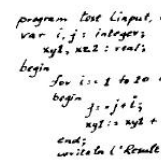 program test (input,
var i, j : integer;
xy1, xz2 : real;
begin
for i := 1 to 10
begin
j := j + i;
xy1 := xy1 +
end;
writeln ('Result